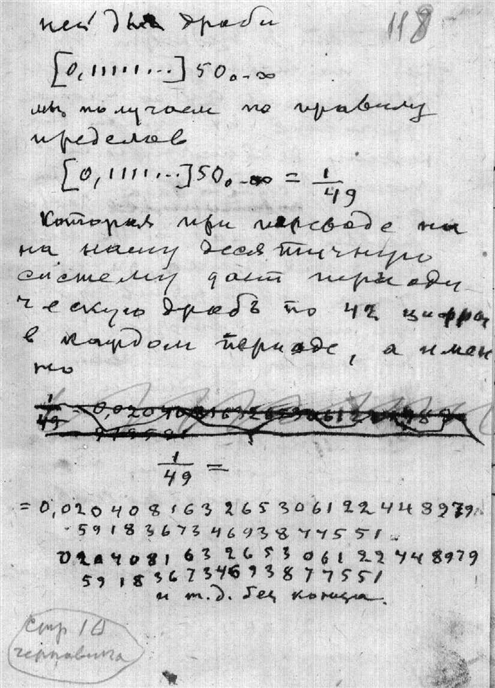 ней для дроби
118
[0,11111...] 50₀.-∞
мы получаем по правилу
пределов
[0,1111...] 50₀-∞ = 1/49
Которая при переводе на
на нашу десятичную
систему дает периоди
ческую дробь по 42 цифры
в каждом периоде, а имен
но
1/49 =
= 0,020 408163 265306122448979
591836734693877551
020408163265306122448979
591836734693877551
и т.д. без конца.
Стр 10
черновика